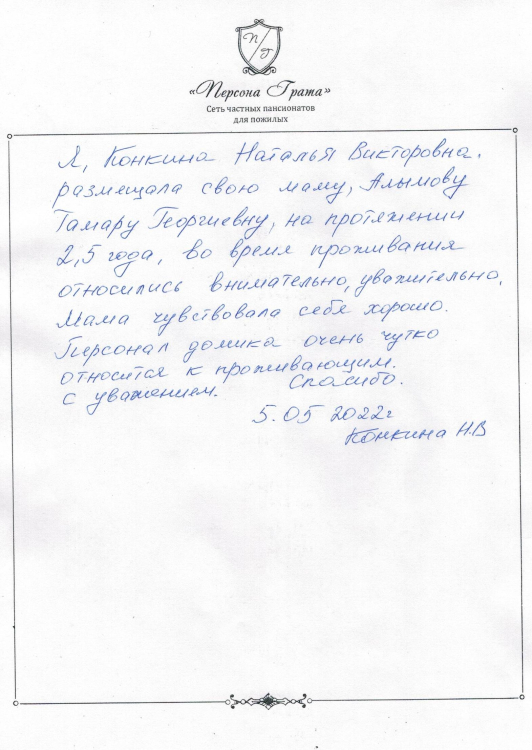 П/Г
«Персона Грата»
Сеть частных пансионатов
для пожилых
Я, Конкина Наталья Викторовна.
размещала свою маму, Алымову
Тамару Георгиевну, на протяжении
2,5 года, во время проживания
относились внимательно, уважительно.
Мама чувствовала себя хорошо.
Персонал домика очень чутко
относится к проживающим.
с уважением. Спасибо.
5.05 2022г
Конкина Н.В